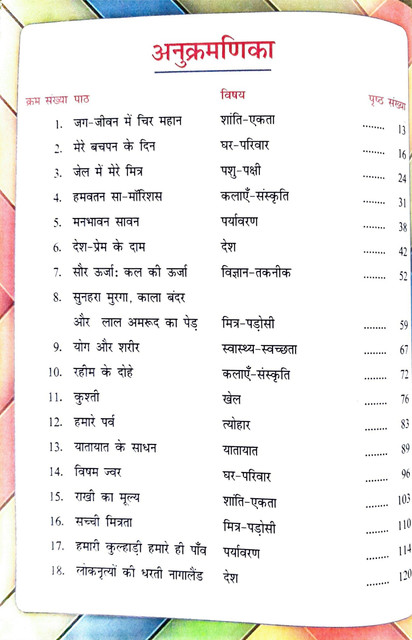 अनुक्रमणिका
क्रम संख्या पाठ विषय पृष्ठ संख्या
1. जग-जीवन में चिर महान शांति-एकता ........ 13
2. मेरे बचपन के दिन घर-परिवार ........ 16
3. जेल में मेरे मित्र पशु-पक्षी ........ 24
4. हमवतन सा-मॉरिशस कलाएँ-संस्कृति ........ 31
5. मनभावन सावन पर्यावरण ........ 38
6. देश-प्रेम के दाम देश ........ 42
7. सौर ऊर्जा: कल की ऊर्जा विज्ञान-तकनीक ........ 52
8. सुनहरा मुरगा, काला बंदर
और लाल अमरूद का पेड़ मित्र-पड़ोसी ........ 59
9. योग और शरीर स्वास्थ्य-स्वच्छता ........ 67
10. रहीम के दोहे कलाएँ-संस्कृति ........ 72
11. कुश्ती खेल ........ 76
12. हमारे पर्व त्योहार ........ 83
13. यातायात के साधन यातायात ........ 89
14. विषम ज्वर घर-परिवार ........ 96
15. राखी का मूल्य शांति-एकता ........ 103
16. सच्ची मित्रता मित्र-पड़ोसी ........ 110
17. हमारी कुल्हाड़ी हमारे ही पाँव पर्यावरण ........ 114
18. लोकनृत्यों की धरती नागालैंड देश ........ 120